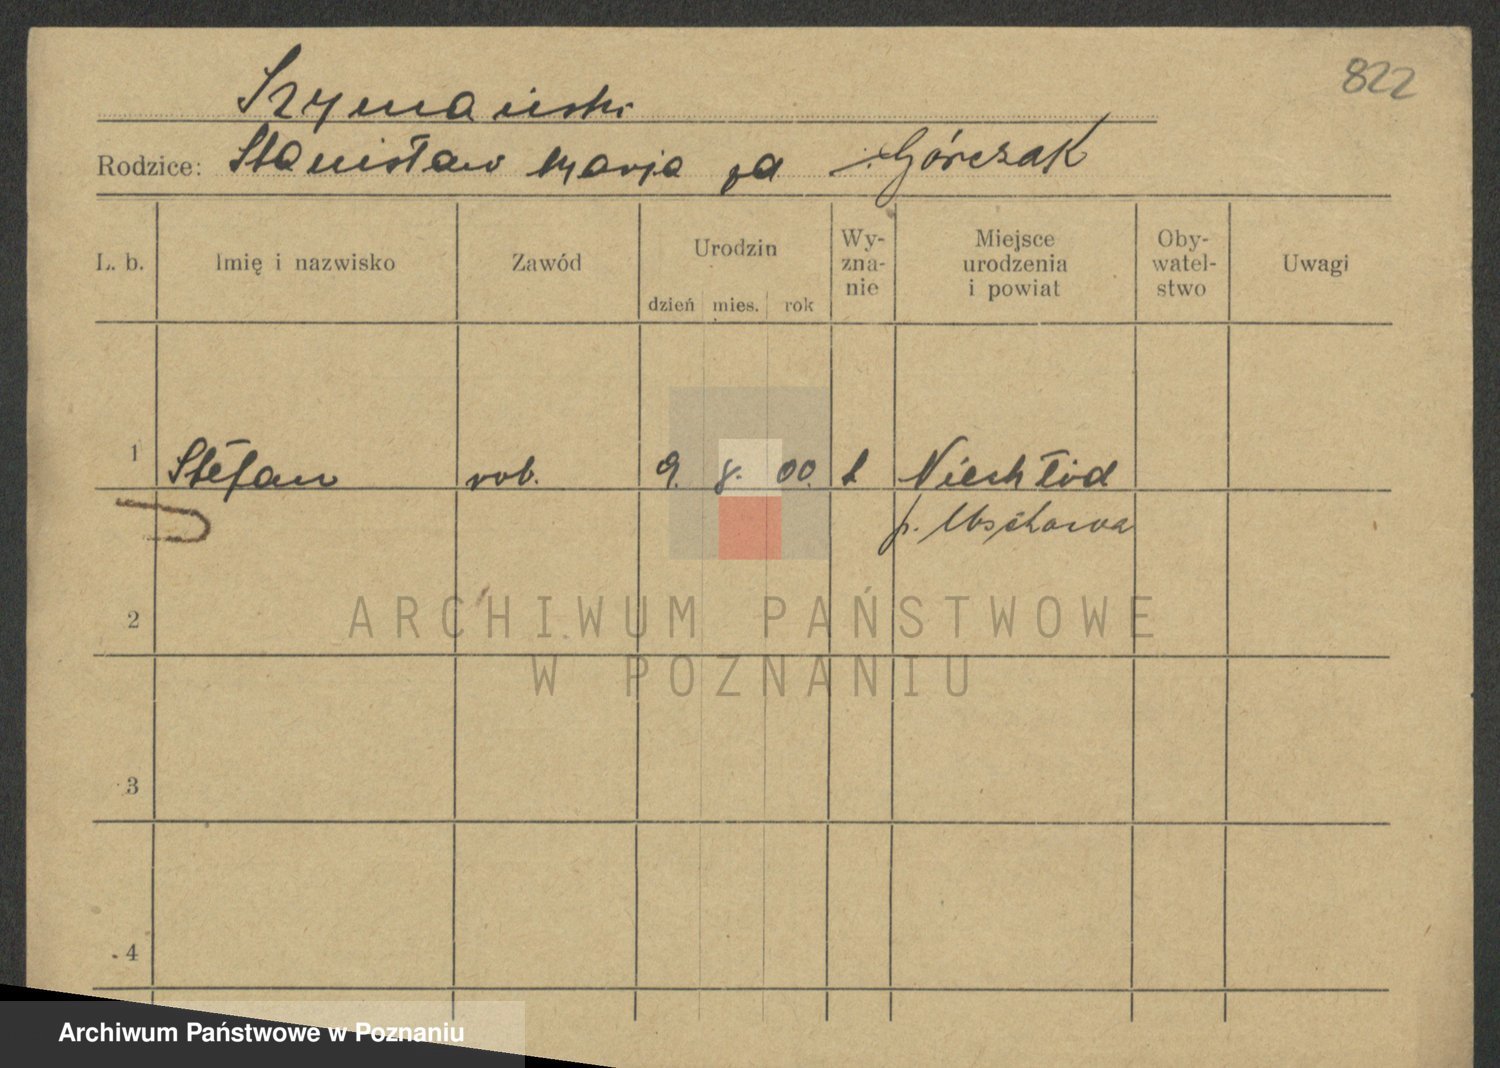 822
Szymański
Rodzice: Stanisław Marja zd Górczak
L. b. Imię i nazwisko Zawód Urodzin dzień mies. rok Wy-zna-nie Miejsce urodzenia i powiat Oby-watel-stwo Uwagi
1 Stefan rob. 9. 8. 00. Niechłód
p. Wschowa
2
ARCHIWUM PAŃSTWOWE
W POZNANIU
3
4
Archiwum Państwowe w Poznaniu